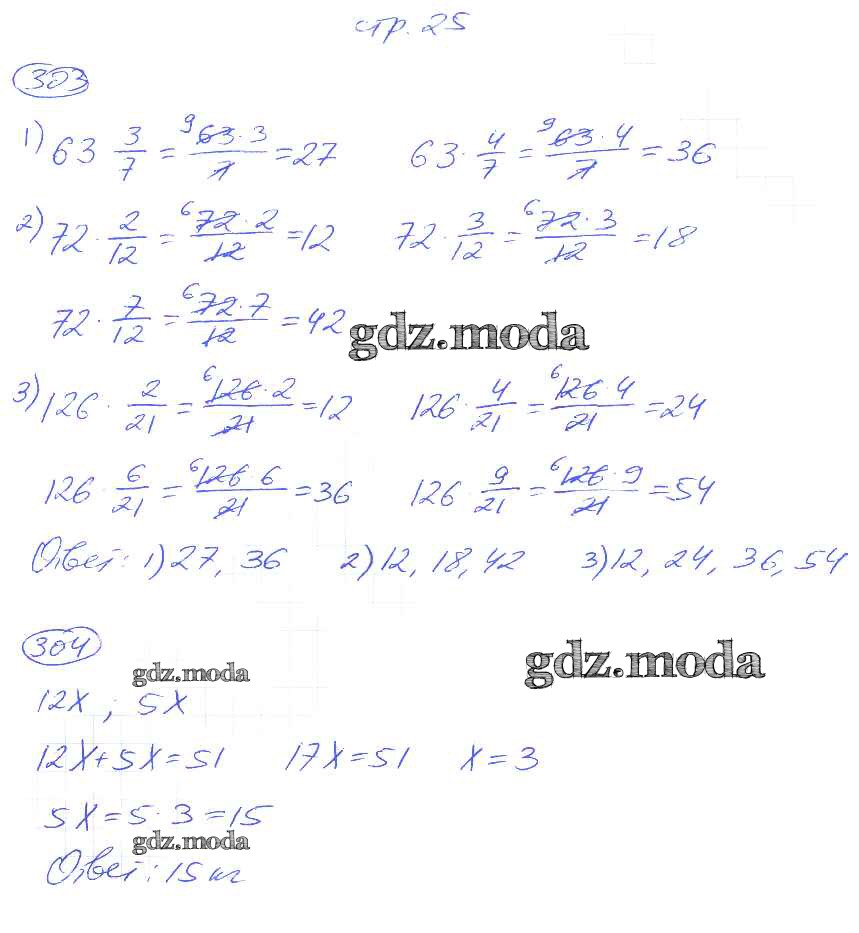 стр. 25
303
1) 63 3/7 = 9 63·3/7 = 27 63 · 4/7 = 9 63·4/7 = 36
2) 72 · 2/12 = 6 72·2/12 = 12 72 · 3/12 = 6 72·3/12 = 18
72 · 7/12 = 6 72·7/12 = 42
gdz.moda
3) 126 · 2/21 = 6 126·2/21 = 12 126 · 4/21 = 6 126·4/21 = 24
126 · 6/21 = 6 126·6/21 = 36 126 · 9/21 = 6 126·9/21 = 54
Ответ: 1) 27, 36 2) 12, 18, 42 3) 12, 24, 36, 54
304
gdz.moda
gdz.moda
12x ; 5x
12x + 5x = 51 17x = 51 x = 3
5x = 5 · 3 = 15
gdz.moda
Ответ: 15 кг